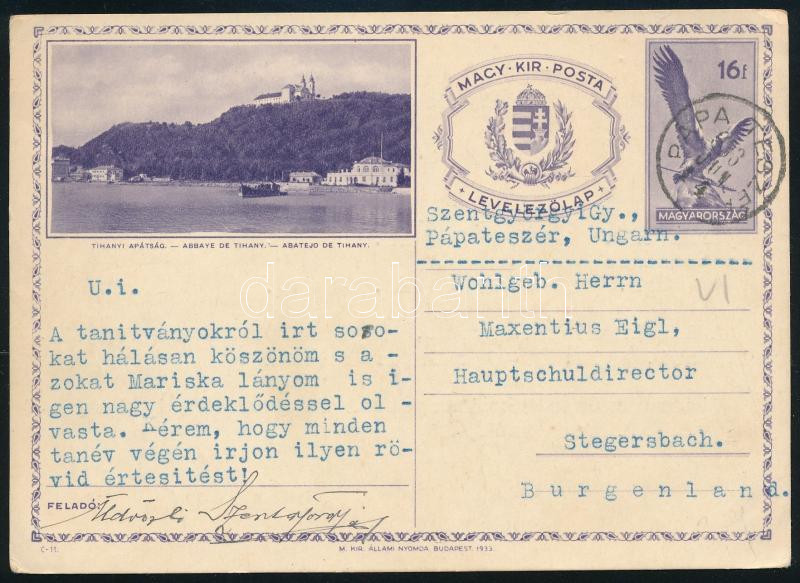 MAGY·KIR·POSTA
LEVELEZŐLAP
16f
MAGYARORSZÁG
PÁPA
TIHANYI APÁTSÁG. — ABBAYE DE TIHANY. — ABATEJO DE TIHANY.
SzentgyörgyiGy.,
Pápateszér, Ungarn.
Wohlgeb. Herrn
Maxentius Eigl,
Hauptschuldirector
Stegersbach.
Burgenland.
VI
U.i.
A tanitványokról irt soro-
kat hálásan köszönöm s a -
zokat Mariska lányom is i-
gen nagy érdeklődéssel ol -
vasta. Kérem, hogy minden
tanév végén irjon ilyen rö-
vid értesitést!
FELADÓ:
Üdvözli Szentgyörgyi
C-11.
M. KIR. ÁLLAMI NYOMDA. BUDAPEST. 1933.
darabanth